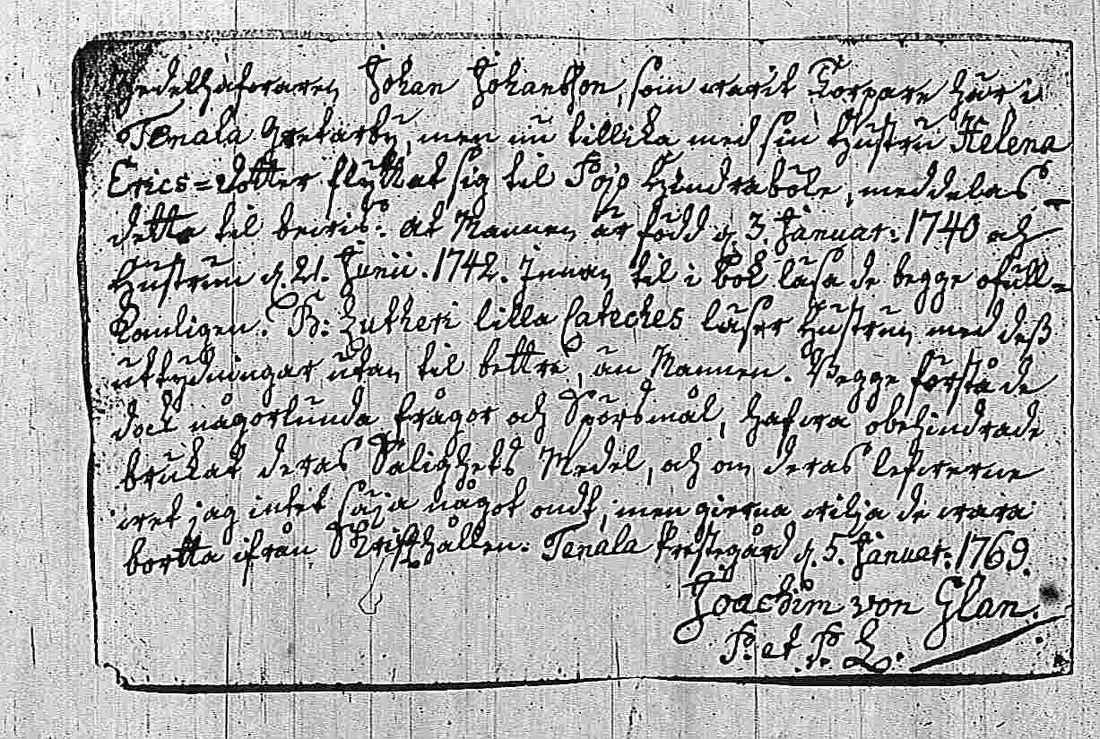 Zedelhafwaren Johan Johansson, som warit Torpare här i
Tenala Gretarby, men nu tillika med sin Hustru Helena
Erics=dotter flyttat sig til Pojo Hindraböle, meddelas
detta til bewis: at Mannen är född d. 3. Januar: 1740 och
Hustrun d. 21. Junii. 1742. Innan til i bok läsa de begge ofull=
komligen. B: Lutheri lilla Cateches läser Hustrun med dess
uttydningar utan til bettre, än Mannen. Begge förstå de
dock någorlunda frågor och Spörsmål, hafwa obehindrade
brukat deras Salighets Medel, och om deras lefwerne
wet jag intet säja något ondt, men gierna wilja de wara
bortta ifrån Skrifthållen. Tenala Prestegård d. 5. Januar: 1769.
Joachim von Glan.
P. et P. L.